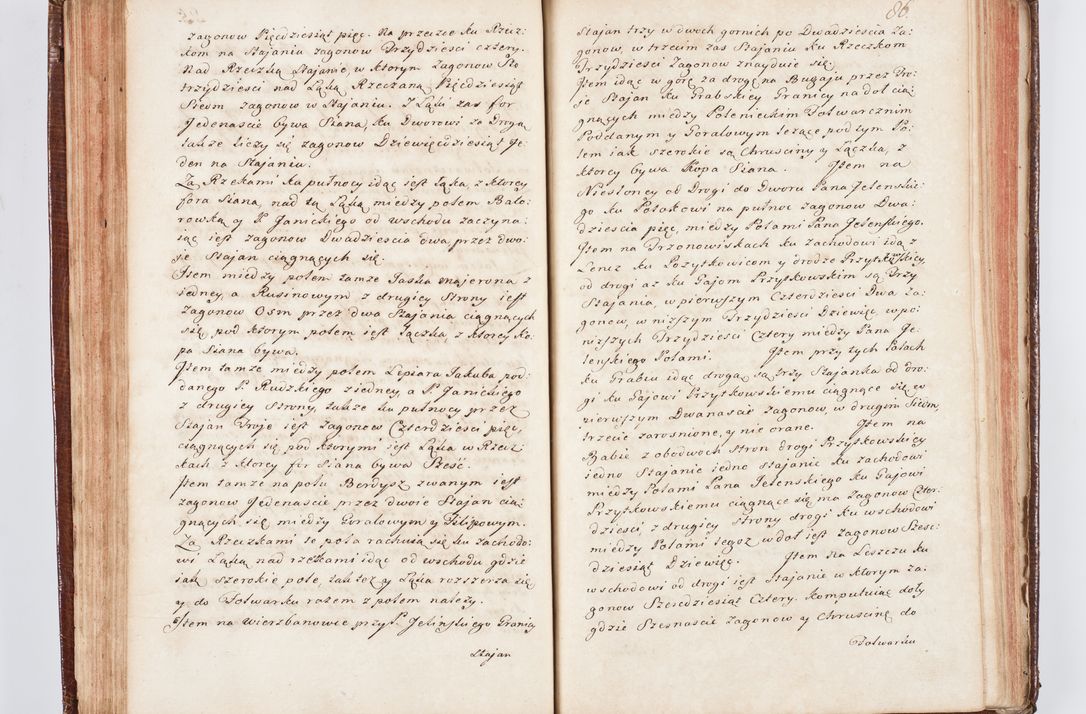 zagonow Pięcdziesiąt pięc. Na przeczce ku Rzecz
kom na Stajaniu zagonow Trzydziesci cztery.
Nad Rzeczką Stajanie, w ktorym Zagonow Sto
trzydziesci nad Łąką Rzeczaną Pięcdziesiąt
Siedm zagonow w Stajaniu. Z Łąki zas for
Jedenascie bywa Siana, ku Dworowi za Drogą
takze liczy się zagonow Dziewięcdziesiąt Je
den na Stajaniu.
Za Rzekami ku pułnocy idąc iest Łąka, z ktorey
fora Siana, nad tą Łąką między polem Balo:
rowką y P. Janickiego od wschodu zaczyna:
iąc iest zagonow Dwadziescia dwa, przez dwo:
ie Stajan ciągnących się.
Item między polem tamze Jaska Majerona z
iedney, a Rusinowym z drugiey Strony iest
zagonow Osm przez dwa Stajania ciągnących
się, pod ktorym polem iest Łączka z ktorey Ko:
pa Siana bywa.
Item tamze między polem Lepiara Jakuba pod:
danego P. Rudzkiego z iedney, a P. Janickiego
z drugiey Strony, takze ku pułnocy przez
Stajan Troje iest Zagonow Czterdziesci pięc,
ciągnących się pod ktorymi iest Łąka w Rzecz
kach z ktorey for Siana bywa Szesc.
Item tamze na polu Berdysz zwanym iest
zagonow Jedenascie przez dwoie Stajan cią:
gnących się między Goralowym y Filipowym.
Za Rzeczkami te pola rachuią się ku zachodo:
wi Łąką nad rzekami idąc od wschodu gdzie
iak szerokie pole, tak tez y Łąka rozszerza się
y do Folwarku razem z polem nalezy.
Item na Wierzbanowie przy P. Jelinskiego Granicy
Stajan
86.
Stajan trzy w dwoch gornich po Dwadziescia Za:
gonow, w trzecim zas Stajaniu ku Rzeczkom
Trzydziesci Zagonow znayduie się.
Item idąc w gorę za drogę na Bugaju przez Tro:
je Stajan ku Grabskiey Granicy na doł cią:
gnących między Poleniechim Folwarcznim
Poddanym y Goralowym lezące pod tym Po:
lem iak szerokie są Chrusciny y Łączka, z
ktorey bywa Kopa Siana. Item na
Niesłoncy od Drogi do Dworu Pana Jelenskie:
go ku Potakowi na pułnoc zagonow Dwa:
dziescia pięc, między Polami Pana Jelenskiego.
Item na Trzonowiskach ku zachodowi idą z
Lencz ku Pozytkowicom y drodze Przytkowskiey,
od drogi az ku Gajom Przytkowskim są Trzy
Stajania, w pierwszym Czterdziesci Dwa Za:
gonow, w nizszym Trzydziesci Dziewięc, w po:
nizszych Trzydziesci Cztery między Pana Je:
lenskiego Polami. Item przy tych Polach
ku Grabiu idąc drogą są trzy Stajanka od dro:
gi ku Gajowi Przytkowskiemu ciągnące się w
pierwszym Dwanascie Zagonow, w drugim Siedm,
trzecie zarosnione, y nie orane. Item na
Babie z obodwoch Stron drogi Przytkowskiey
iedno Stajanie iedno stajanie ku zachodowi
między Polami Pana Jelenskiego ku Gajowi
Przytkowskiemu ciągnące się ma Zagonow Czter:
dziesci, z drugiey Strony drogi ku wschodowi
między Polami tegoz w doł iest Zagonow Szesc:
dziesiąt Dziewięc. Item na Leszczu ku
wschodowi od drogi iest Stajanie w ktorym za:
gonow Szescdziesiąt Cztery. Komputuiąc doły
gdzie Szesnascie Zagonow y Chruscinę do
Folwarku